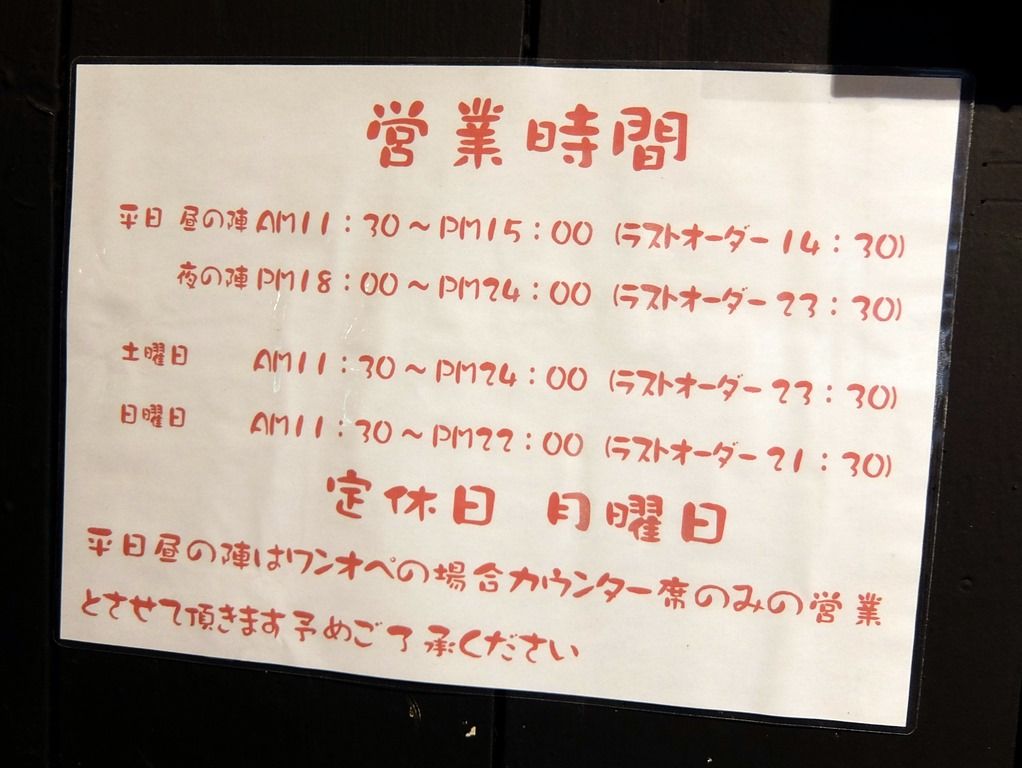 営業時間
平日 昼の陣 AM11:30～PM15:00 (ラストオーダー 14:30)
夜の陣 PM18:00～PM24:00 (ラストオーダー 23:30)
土曜日 AM11:30～PM24:00 (ラストオーダー 23:30)
日曜日 AM11:30～PM22:00 (ラストオーダー 21:30)
定休日 月曜日
平日昼の陣はワンオペの場合カウンター席のみの営業
とさせて頂きます予めご了承ください